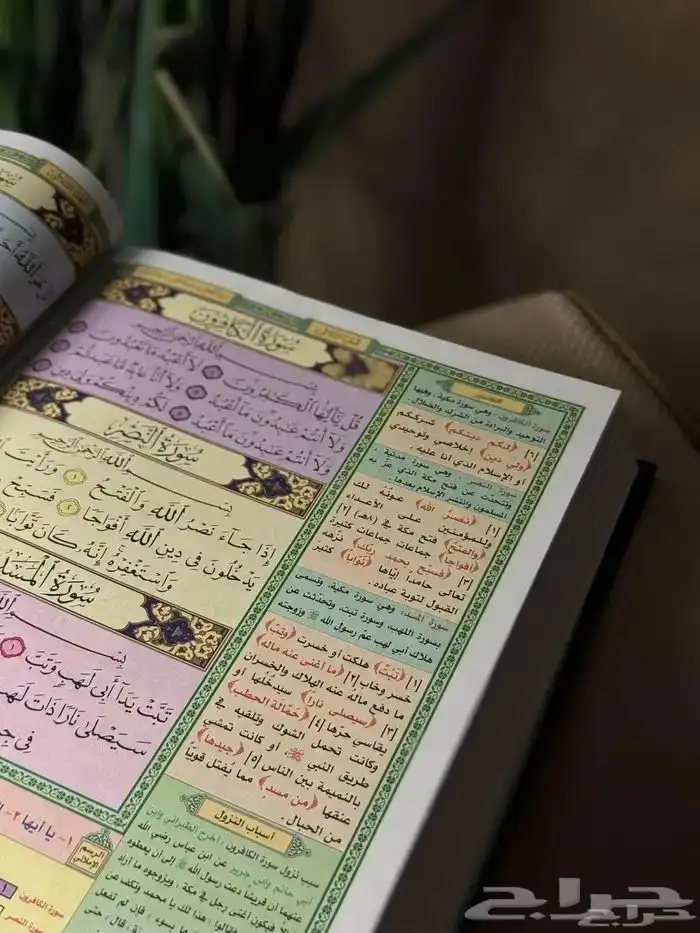 سُورَةُ الْكَافِرُونَ
بِسْمِ اللَّهِ الرَّحْمَٰنِ الرَّحِيمِ
قُلْ يَا أَيُّهَا الْكَافِرُونَ ١ لَا أَعْبُدُ مَا تَعْبُدُونَ ٢
وَلَا أَنتُمْ عَابِدُونَ مَا أَعْبُدُ ٣ وَلَا أَنَا عَابِدٌ مَّا عَبَدتُّمْ ٤
وَلَا أَنتُمْ عَابِدُونَ مَا أَعْبُدُ ٥ لَكُمْ دِينُكُمْ وَلِيَ دِينِ ٦
سُورَةُ النَّصْرِ
بِسْمِ اللَّهِ الرَّحْمَٰنِ الرَّحِيمِ
إِذَا جَاءَ نَصْرُ اللَّهِ وَالْفَتْحُ ١ وَرَأَيْتَ
يَدْخُلُونَ فِي دِينِ اللَّهِ أَفْوَاجًا ٢ فَسَبِّحْ
وَاسْتَغْفِرْهُ إِنَّهُ كَانَ تَوَّابًا
سُورَةُ الْمَسَد
بِسْمِ اللَّهِ
تَبَّتْ يَدَا أَبِي لَهَبٍ وَتَبَّ ١
سَيَصْلَىٰ نَارًا ذَاتَ لَهَبٍ
فِي جِ
التفسير
سورة الكافرون: وهي سورة مكية، وفيها
التوحيد والبراءة من الشرك والضلال.
[٦] ﴿لكم دينكم﴾ شرككم
﴿ولي دين﴾ إخلاصي وتوحيدي
أو الإسلام الذي أنا عليه.
سورة النصر: وهي سورة مدنية،
وتتحدث عن فتح مكة الذي عز به
المسلمون وانتشر الإسلام بعدها.
[١] ﴿نصر الله﴾ عونه لك
وللمؤمنين على الأعداء
﴿والفتح﴾ فتح مكة في (٨هـ) [٢]
﴿أفواجا﴾ جماعات جماعات كثيرة
[٣] ﴿فسبح بحمد ربك﴾ نزّهه
تعالى حامداً إيّاها ﴿توّاباً﴾ كثير
القبول لتوبة عباده.
سورة المسد: وهي سورة مكية، وتسمى
بسورة اللهب، وسورة تبت، وتحدثت عن
هلاك أبي لهب عمّ رسول الله ﷺ وزوجته
[١] ﴿تَبَّتْ﴾ هلكت أو خسرت ﴿وَتَبّ﴾
خسر وخاب [٢] ﴿ما أغنى عنه ماله﴾
ما دفع ماله عنه الهلاك والخسران
[٣] ﴿سيصلى ناراً﴾ سيدخُلها أو
يقاسي حرّها [٤] ﴿حمّالة الحطب﴾
وكانت تحمل الشوك وتلقيه في
طريق النبي ﷺ، أو كانت تمشي
بالنميمة بين الناس [٥] ﴿جيدها﴾
عنقها ﴿من مسد﴾ مما يُفتل قويّاً
من الحبال.
أسباب النزول
سبب نزول سورة الكافرون: أخرج الطبراني وابن
أبي حاتم وابن جرير عن ابن عباس رضي الله
عنهما أن قريشاً دعت رسول الله ﷺ إلى أن يعطوه
مالاً فيكون أغنى رجل في مكة، ويزوجوه ما أراد
فقالوا: هذا لك يا محمد وتكف عن
فإن لم تفعل
قال: حتى
الرسم
الإملائي
١- يا أيها ٢-
سورة الكافرون
سورة النصر
حراج